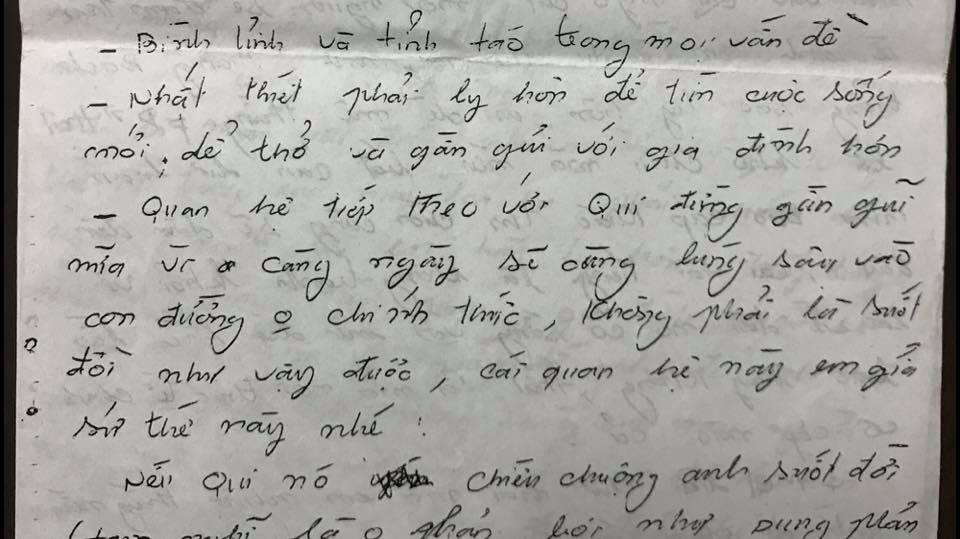 - Bình tĩnh và tỉnh táo trong mọi vấn đề
- Nhất thiết phải ly hôn để tìm cuộc sống
mới, dễ thở và gần gũi với gia đình hơn
- Quan hệ tiếp theo với Quí đừng gần gũi
nữa vì càng ngày sẽ càng lúng sâu vào
con đường o chính thức, không phải là suốt
đời như vậy được, cái quan hệ này em giả
sử thế này nhé :
Nếu Quí nó chiều chuộng anh suốt đời
là o phản bội như Dung